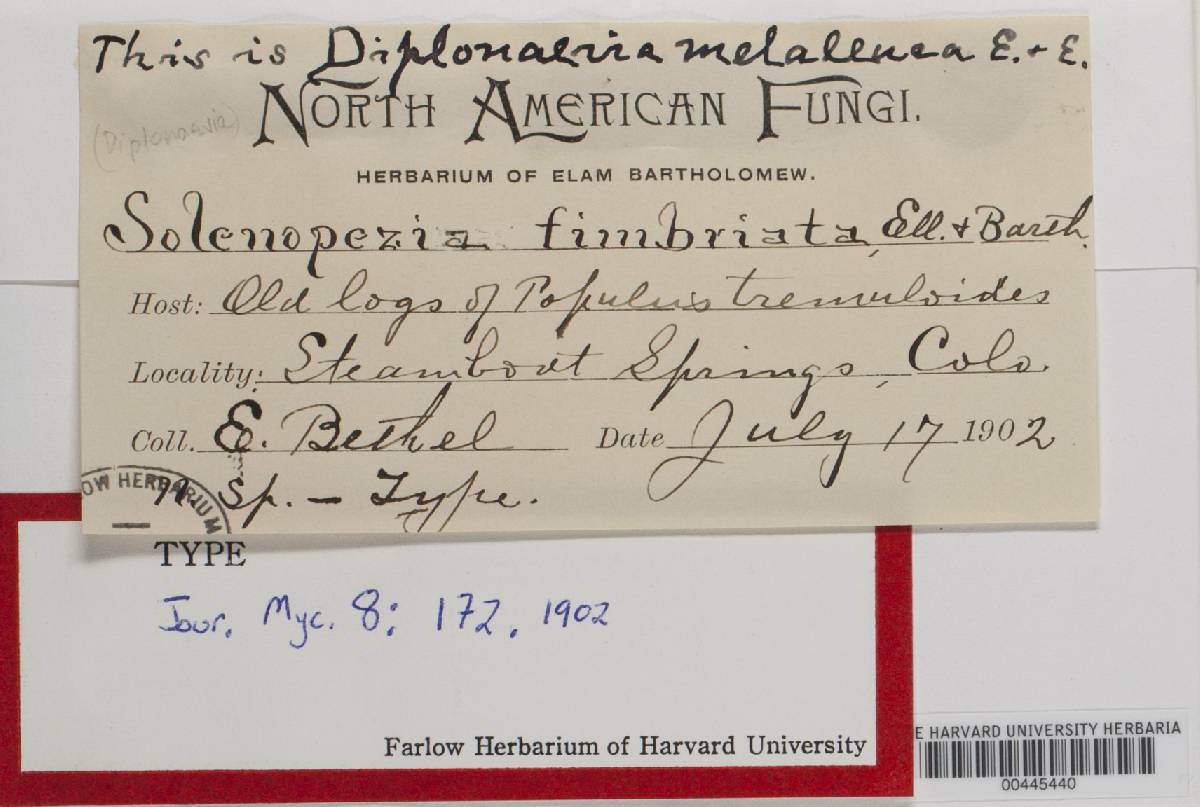 This is Diplonaevia melaleuca E. + E.
NORTH AMERICAN FUNGI.
(Diplonaevia)
HERBARIUM OF ELAM BARTHOLOMEW.
Solenopezia fimbriata, Ell. + Barth.
Host: Old logs of Populus tremuloides
Locality: Steamboat Springs, Colo.
Coll. E. Bethel Date July 17 1902
n. sp. – Type.
OW HERBARIUM
TYPE
Jour. Myc. 8: 172. 1902
Farlow Herbarium of Harvard University
E HARVARD UNIVERSITY HERBARIA
00445440